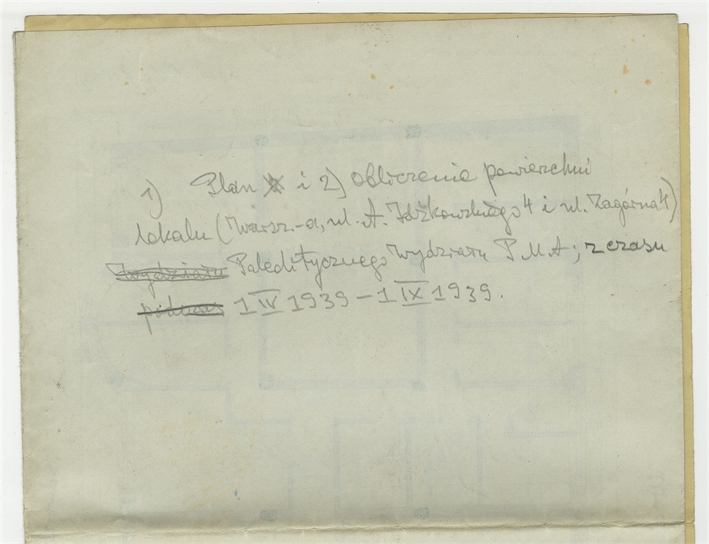 1) Plan i 2) obliczenia powierzchni
lokalu (Warsz.-a, ul. A. Idźkowskiego 4 i ul. Zagórna 1)
Paleolitycznego Wydziału P.M.A; z czasu
1 IV 1939 – 1 IX 1939.